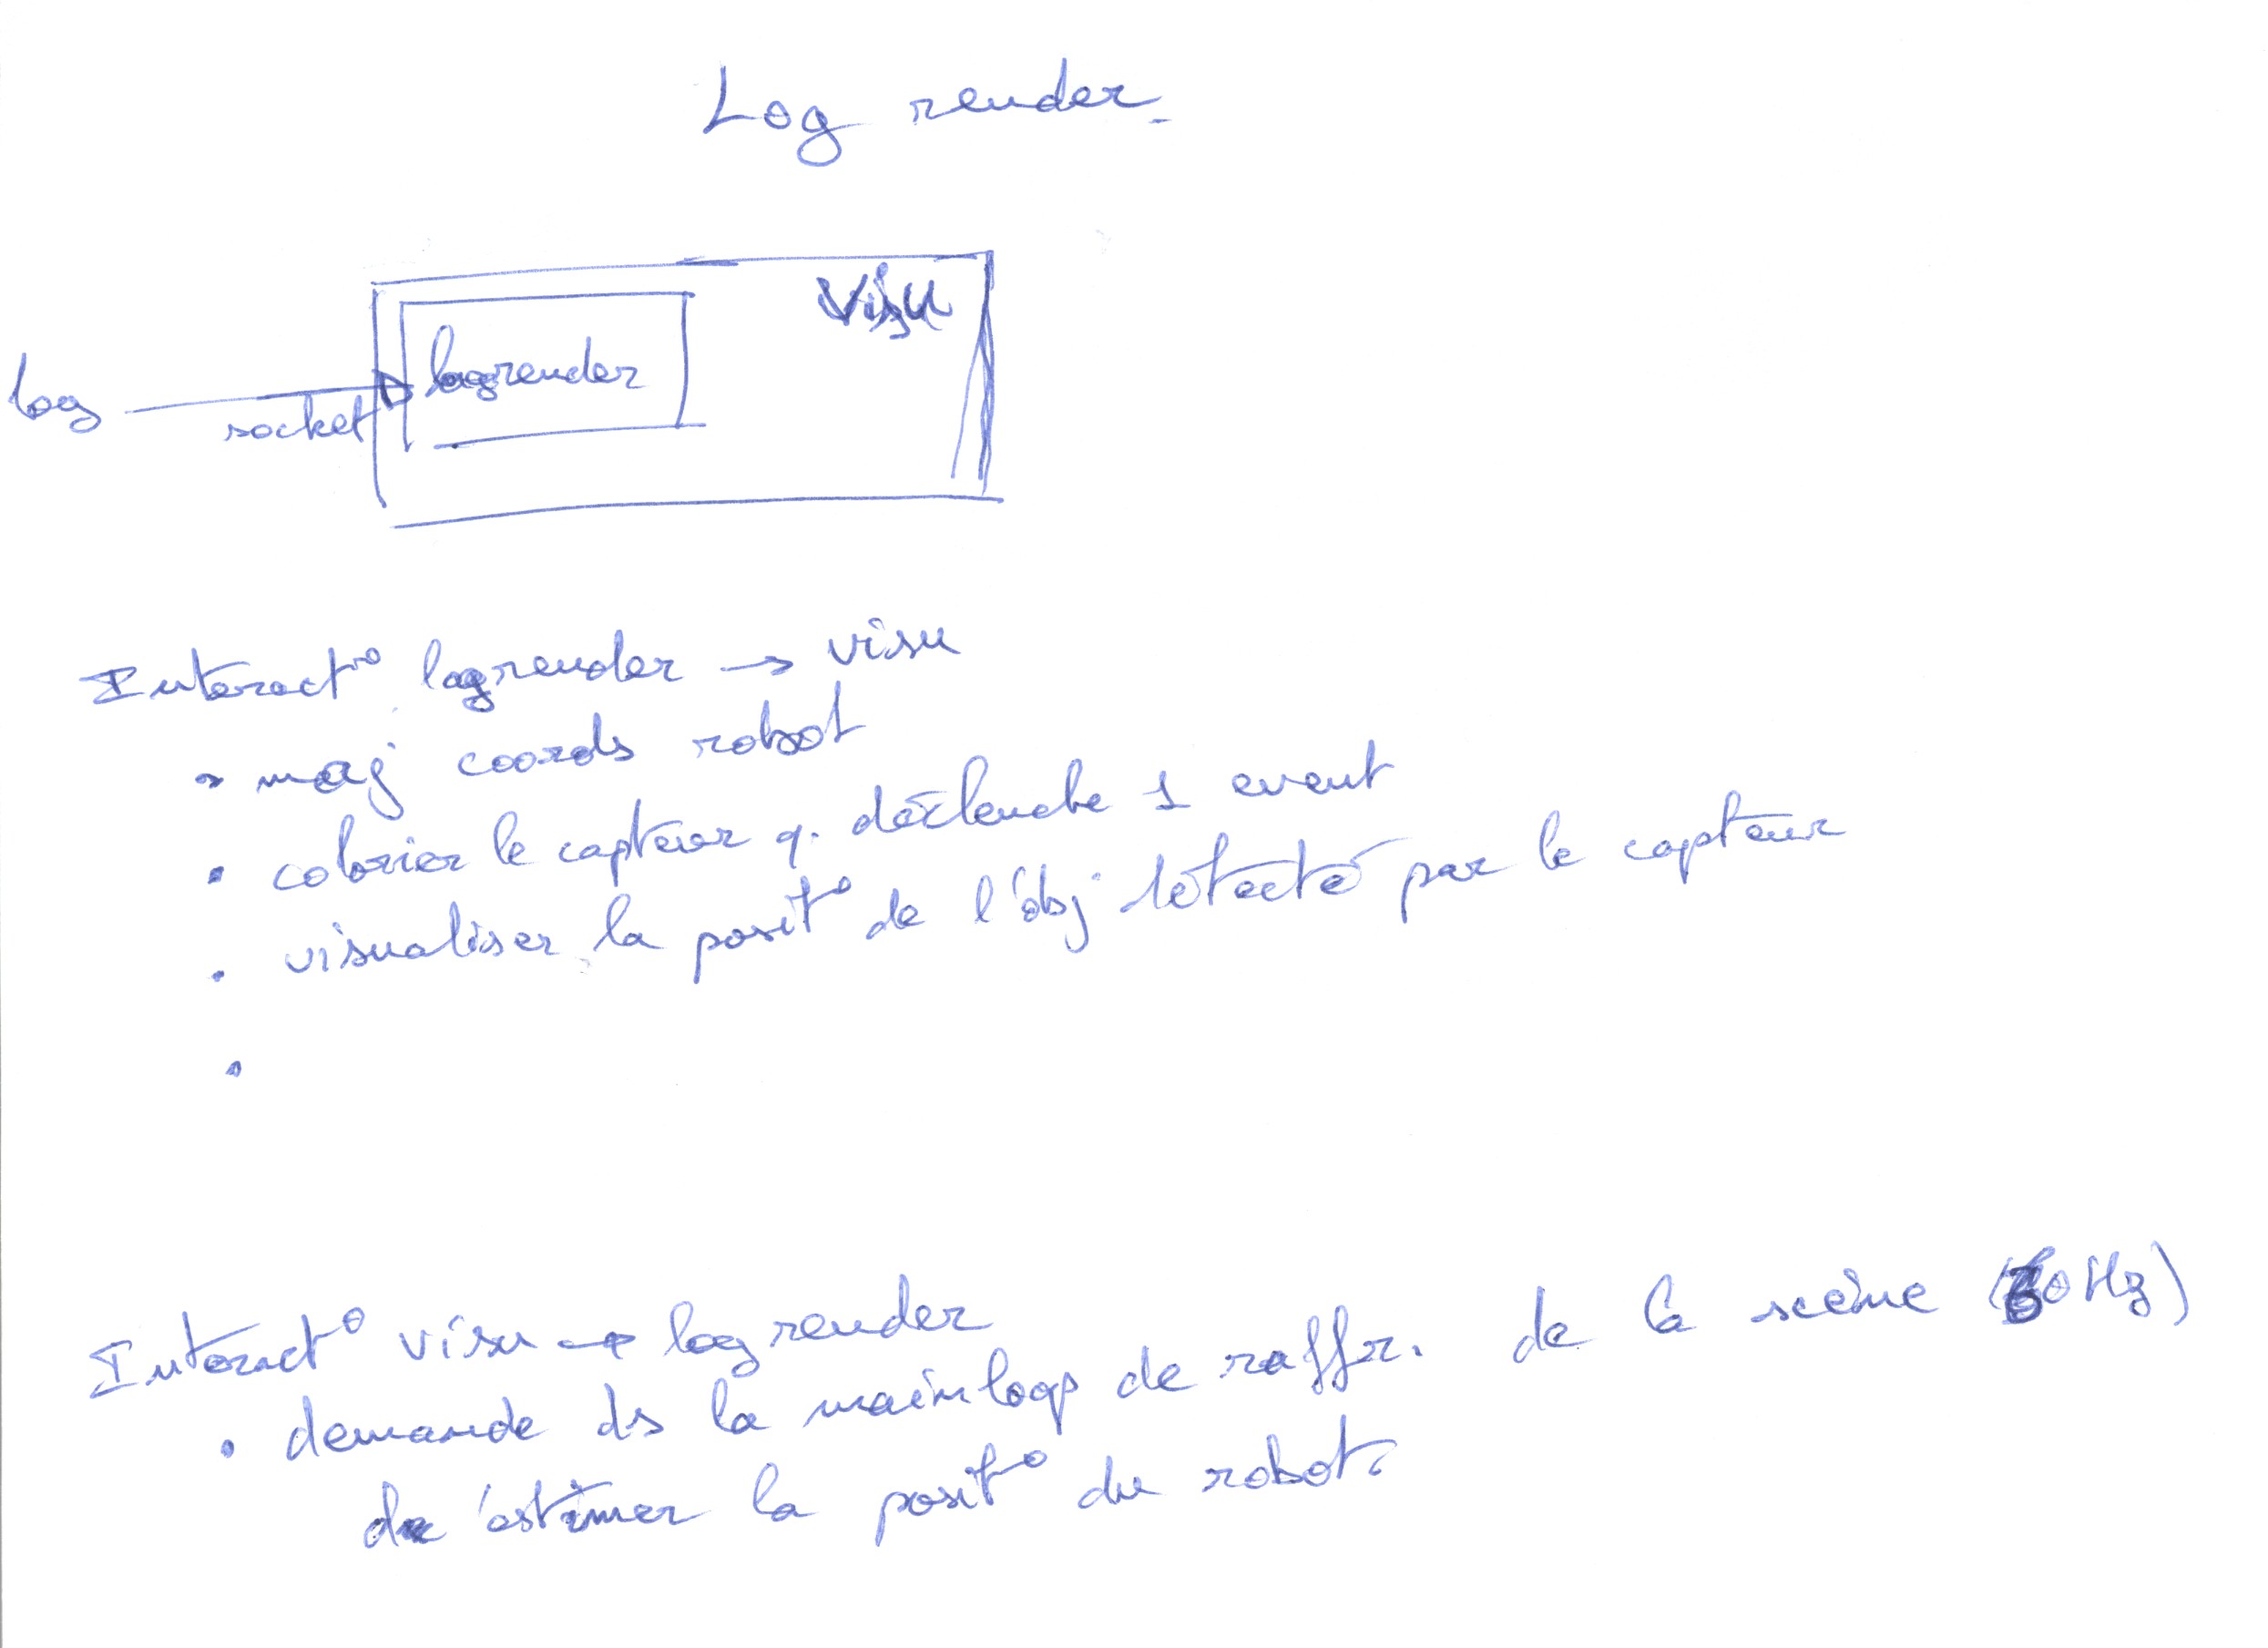 Log render
Visu
logrender
log
socket
Interact° logrender → visu
• maj coords robot
• colorier le capteur q. déclenche 1 event
• visualiser la posit° de l'obj détecté par le capteur
•
Interact° visu → logrender
• demande ds la mainloop de raffr. de la scène ( Hz)
d'estimer la posit° du robot.